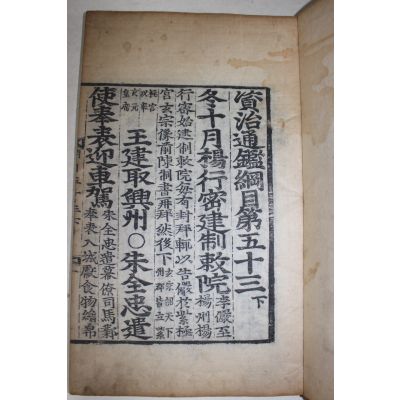 資治通鑑綱目第五十三下
冬十月楊行密建制敕院
李儼至
楊州楊
行密始建制敕院每有封拜輒以告儼於紫極
宮玄宗像前陳制書再拜然後下
玄宗詔天下
州郡皆立紫
王建取興州○朱全忠遣
使奉表迎車駕
朱全忠遣幕僚司馬鄴
奉表入城獻食物繒帛